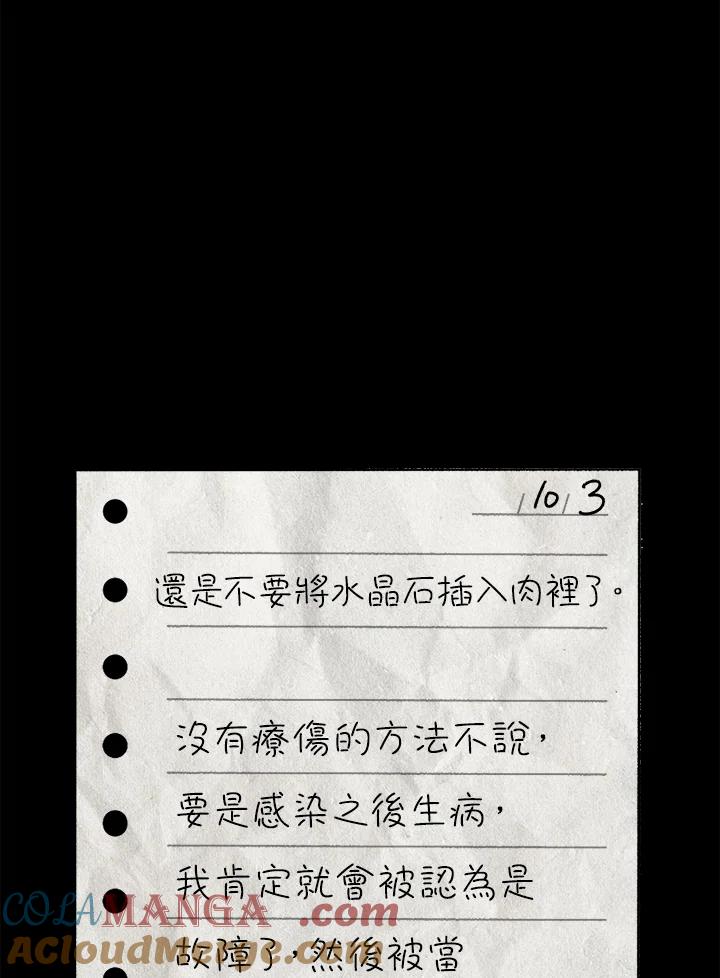 10/3
還是不要將水晶石插入肉裡了。
沒有療傷的方法不說，
要是感染之後生病，
我肯定就會被認為是
故障了，然後被當
COLAMANGA.com
AcloudMerge.com